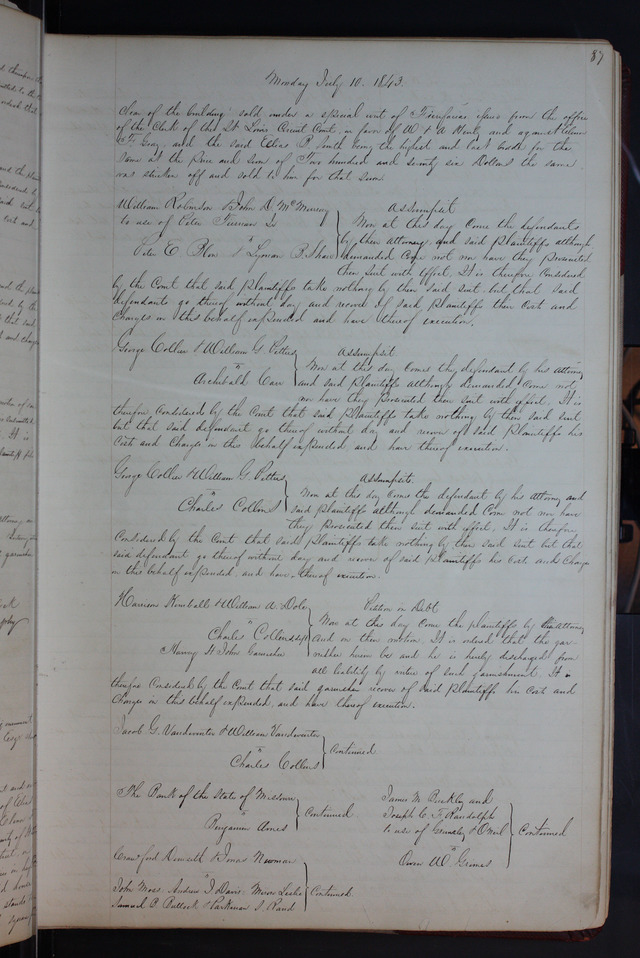 87
Monday July 10. 1843.
of the building sold under a special writ of Fieri facias issued from the office
of the Clerk of the St Louis Circuit Court in favor of W & A and against
F. and the said Elias P. Smith being the highest and last bidder for the
same at the price and sum of Two hundred and seventy six Dollars the same
was stricken off and sold to him for that sum
William Robinson & John D. McMurray
to use of Peter
vs
Peter E. Blow & Lyman B. Shaw
Assumpsit
Now at this day come the defendants
by their attorney and said Plaintiffs although
demanded Come not nor have they prosecuted
their Suit with effect. It is therefore Considered
by the Court that said plaintiffs take nothing by their said suit but that said
defendants go thereof without day and recover of said plaintiffs their Costs and
Charges in this behalf expended and have thereof execution.
George Collier & William G. Pettus
vs
Archibald Carr
Assumpsit
Now at this day Comes the defendant by his attorney
and said plaintiffs although demanded Come not
nor have they prosecuted their suit with effect. It is
therefore Considered by the Court that said plaintiffs take nothing by their said suit
but that said defendant go thereof without day and recover of said plaintiffs his
Costs and Charges in this behalf expended and have thereof execution.
George Collier & William G. Pettus
vs
Charles Collins
Assumpsit.
Now at this day Comes the defendant by his Attorney and
said plaintiffs although demanded Come not nor have
they prosecuted their suit with effect. It is therefore
Considered by the Court that said plaintiffs take nothing by their said suit but that
said defendant go thereof without day and recover of said plaintiffs his Costs and Charges
in this behalf expended, and have thereof execution.
Harrison Kimball & William A. Dole
vs
Charles Collins
Harvey St John Garnishee
Petition in Debt
Now at this day Come the plaintiffs by Attorney
and on their motion, It is ordered that the gar
nishee herein be and he is hereby discharged from
all liability by virtue of such garnishment. It is
therefore Considered by the Court that said garnishee recover of said plaintiffs his Costs and
Charges in this behalf expended, and have thereof execution.
Jacob G. Vandeventer & William Vandeventer
vs
Charles Collins
Continued
The Bank of the State of Missouri
vs
Benjamin Ames
Continued
James M. Buckley and
Joseph C. F. Randolph
to use of & O'Neil
vs
Owen W. Grimes
Continued
Crawford & Jonas Newman
vs
John Moss. Andrew J. Davis. Leslie
Samuel B. Bullock & Parkman S. Rand
Continued.